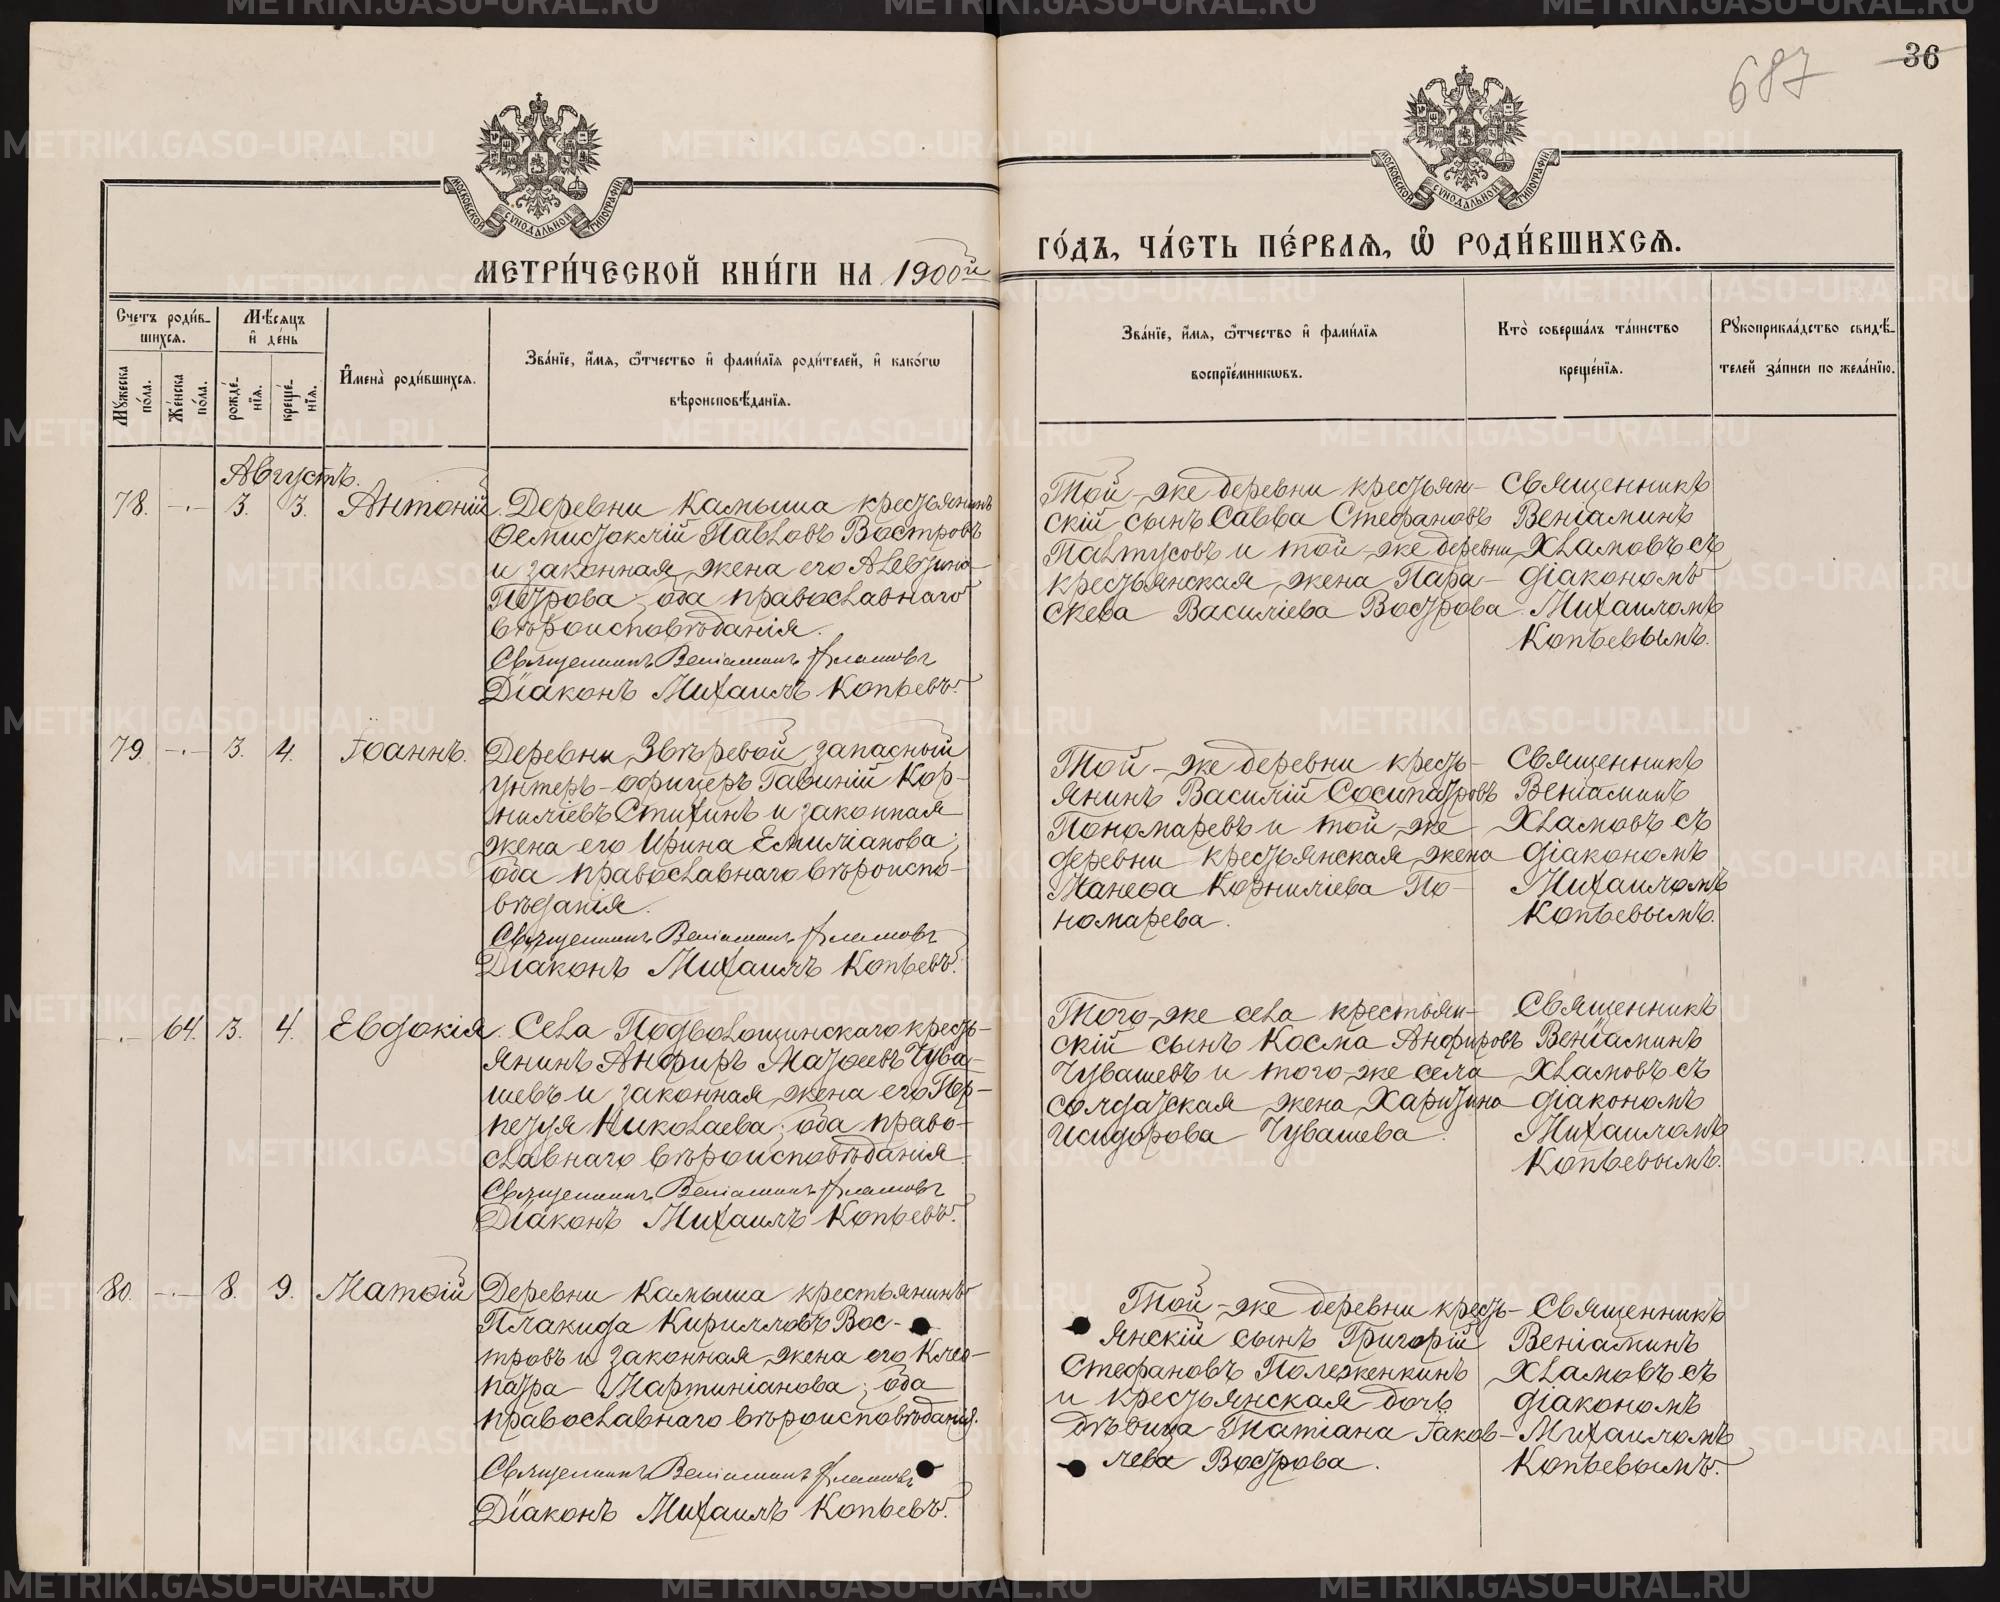 687
36
МОСКОВСКОЙ СѴНОДАЛЬНОЙ ТИПОГРАФІИ.
МОСКОВСКОЙ СѴНОДАЛЬНОЙ ТИПОГРАФІИ.
МЕТРИ́ЧЕСКОЙ КНИ́ГИ НА 1900й
ГО́ДЪ, ЧА́СТЬ ПЕ́РВАЯ, Ѡ҆ РОДИ́ВШИХСЯ.
Счетъ роди́в-
шихся.
Му́жеска по́ла.
Же́нска по́ла.
Мѣ́сяцъ
и҆ де́нь
рожде́-
нїя.
креще́-
нїя.
И҆мена̀ роди́вшихся.
Зва́нїе, и҆́мя, ѻ҆́тчество и҆ фами́лїя роди́телей, и҆ како́гѡ
вѣроисповѣ́данїя.
Зва́нїе, и҆́мя, ѻ҆́тчество и҆ фами́лїя
воспрїе́мникѡвъ.
Кто̀ соверша́лъ та́инство
креще́нїя.
Рꙋкоприкла́дство свидѣ́-
телей за́писи по жела́нїю.
Августъ.
78. -.- 3. 3. Антоній.
Деревни Камыша крестьянинъ
Ѳемистоклій Павловъ Востровъ
и законная жена его Алевтина
Петрова; оба православнаго
вѣроисповѣданія.
Священникъ Веніаминъ Хламовъ
Діаконъ Михаилъ Копьевъ.
Той-же деревни крестьян-
скій сынъ Савва Стефановъ
Палтусовъ и той-же деревни
крестьянская жена Пара-
скева Василіева Вострова.
Священникъ
Веніаминъ
Хламовъ съ
діакономъ
Михаиломъ
Копьевымъ.
79. -.- 3. 4. Іоаннъ.
Деревни Звѣревой запасной
унтеръ-офицеръ Гавиній Кор-
нилiевъ Стихинъ и законная
жена его Ирина Емиліанова;
оба православнаго вѣроиспо-
вѣданія.
Священникъ Веніаминъ Хламовъ
Діаконъ Михаилъ Копьевъ.
Той-же деревни кресть-
янинъ Василій Сосипатровъ
Пономаревъ и той-же
деревни крестьянская жена
Манефа Корниліева По-
номарева.
Священникъ
Веніаминъ
Хламовъ съ
діакономъ
Михаиломъ
Копьевымъ.
-.- 64. 3. 4. Евдокія.
Села Подволошинскаго кресть-
янинъ Анфиръ Матѳеевъ Чува-
шевъ и законная жена его Пер-
петуя Николаева; оба право-
славнаго вѣроисповѣданія.
Священникъ Веніаминъ Хламовъ
Діаконъ Михаилъ Копьевъ.
Того-же села крестьян-
скій сынъ Косма Анфировъ
Чувашевъ и того-же села
солдатская жена Харитина
Исидорова Чувашева.
Священникъ
Веніаминъ
Хламовъ съ
діакономъ
Михаиломъ
Копьевымъ.
80. -.- 8. 9. Матѳій
Деревни Камыша крестьянинъ
Плакида Кирилловъ Вос-
тровъ и законная жена его Клео-
патра Мартиніанова; оба
православнаго вѣроисповѣданія.
Священникъ Веніаминъ Хламовъ
Діаконъ Михаилъ Копьевъ.
Той-же деревни кресть-
янскій сынъ Григорій
Стефановъ Полеженкинъ
и крестьянская дочь
дѣвица Татіана Іаков-
лева Вострова.
Священникъ
Веніаминъ
Хламовъ съ
діакономъ
Михаиломъ
Копьевымъ.
METRIKI.GASO-URAL.RU